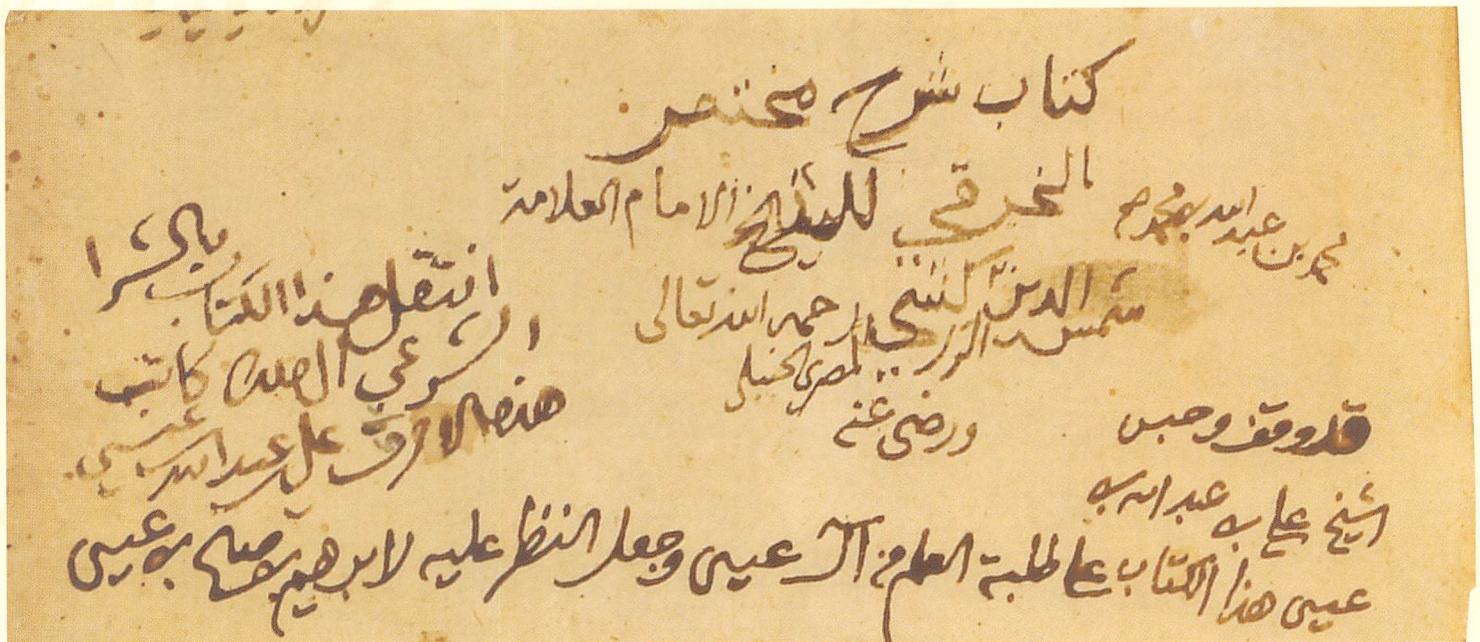 كتاب شرح مختصر
الخرقي للشيخ الامام العلامة
محمد بن عبد الله بن محمد
شمس الدين الزركشي رحمه الله تعالى
المصري الحنبلي
ورضي عنه
انتقل هذا الكتاب بالشرا
الشرعي الى ملك كاتب
هذه الاحرف علي عبد الله عيسى
قد وقف وحبس
الشيخ علي بن عبد الله بن
عيسى هذا الكتاب على طلبة العلم من آل عيسى وجعل النظر عليه لابرهيم بن صالح بن عيسى